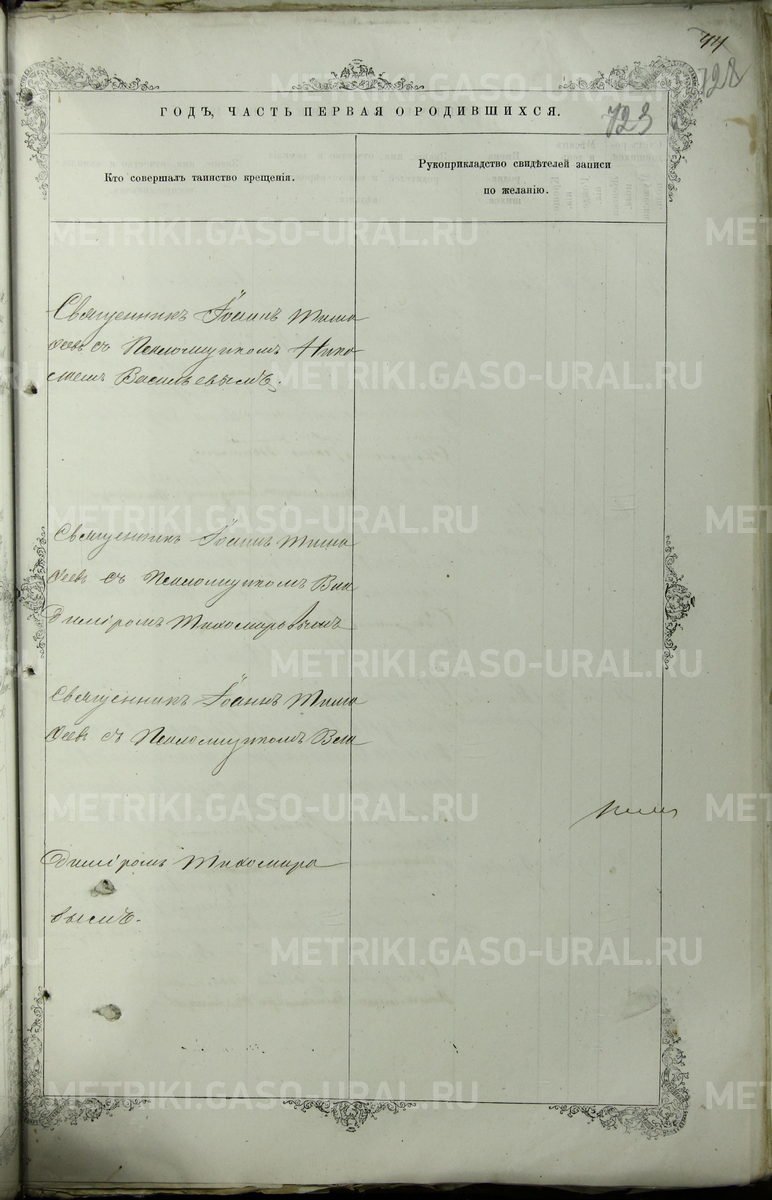 44
728
723
ГОДЪ, ЧАСТЬ ПЕРВАЯ О РОДИВШИХСЯ.
Кто совершалъ таинство крещенія.
Рукоприкладство свидѣтелей записи
по желанію.
Священникъ Іоаннъ Тимо
феевъ съ Псаломщикомъ Нико
лаемъ Васильевымъ.
Священникъ Іоаннъ Тимо
феевъ съ Псаломщикомъ Вла
диміромъ Тихомировымъ
Священникъ Іоаннъ Тимо
феевъ съ Псаломщикомъ Вла
диміромъ Тихомиро
вымъ.
METRIKI.GASO-URAL.RU